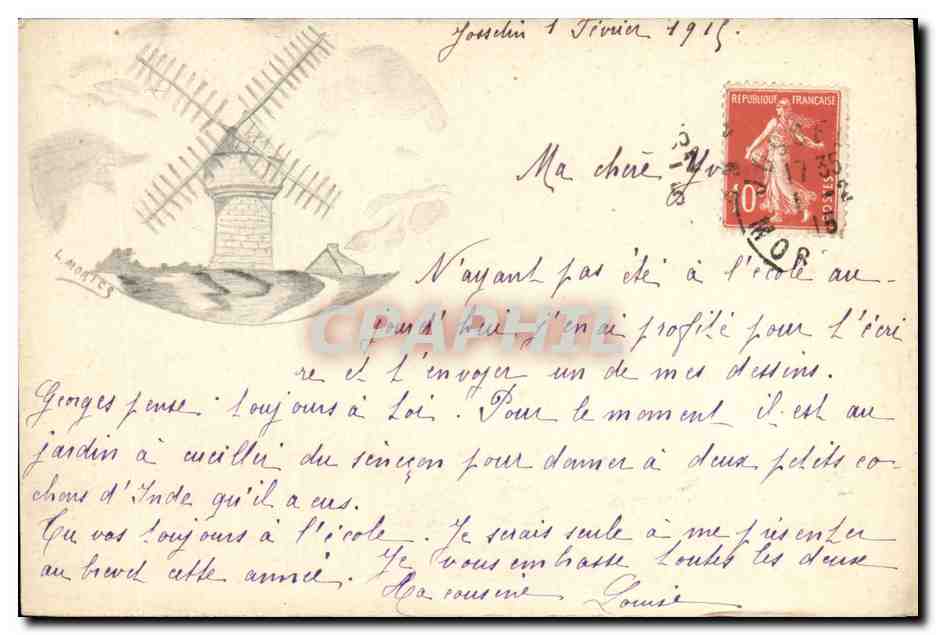 Josselin 1 Février 1915.
RÉPUBLIQUE FRANÇAISE
10c
POSTES
17 35
1 - 2
15
MOR
Ma chère Yv
L MONTES
N'ayant pas été à l'école au-
jourd'hui j'en ai profité pour t'écri
re et t'envoyer un de mes dessins.
Georges pense toujours à toi. Pour le moment il est au
jardin à cueillir du sèneçon pour donner à deux petits co-
chons d'Inde qu'il a eus.
Tu vas toujours à l'école. Je serais seule à me présenter
au brevet cette année. Je vous embrasse toutes les deux
Ta cousine Louise
CPAPHIL